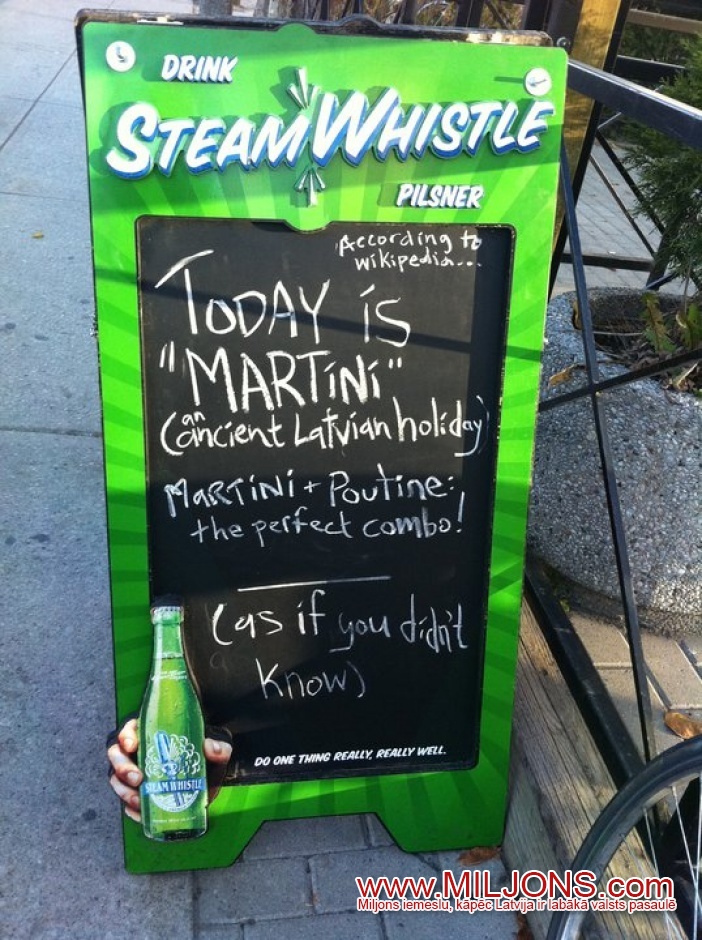 DRINK
STEAM WHISTLE
PILSNER
According to
wikipedia...
TODAY iS
"MARTiNi"
(an ancient Latvian holiday)
MARTiNi + Poutine:
the perfect combo!
(as if you didn't
know)
DO ONE THING REALLY, REALLY WELL.
STEAM WHISTLE
www.MILJONS.com
Miljons iemeslu, kāpēc Latvija ir labākā valsts pasaulē